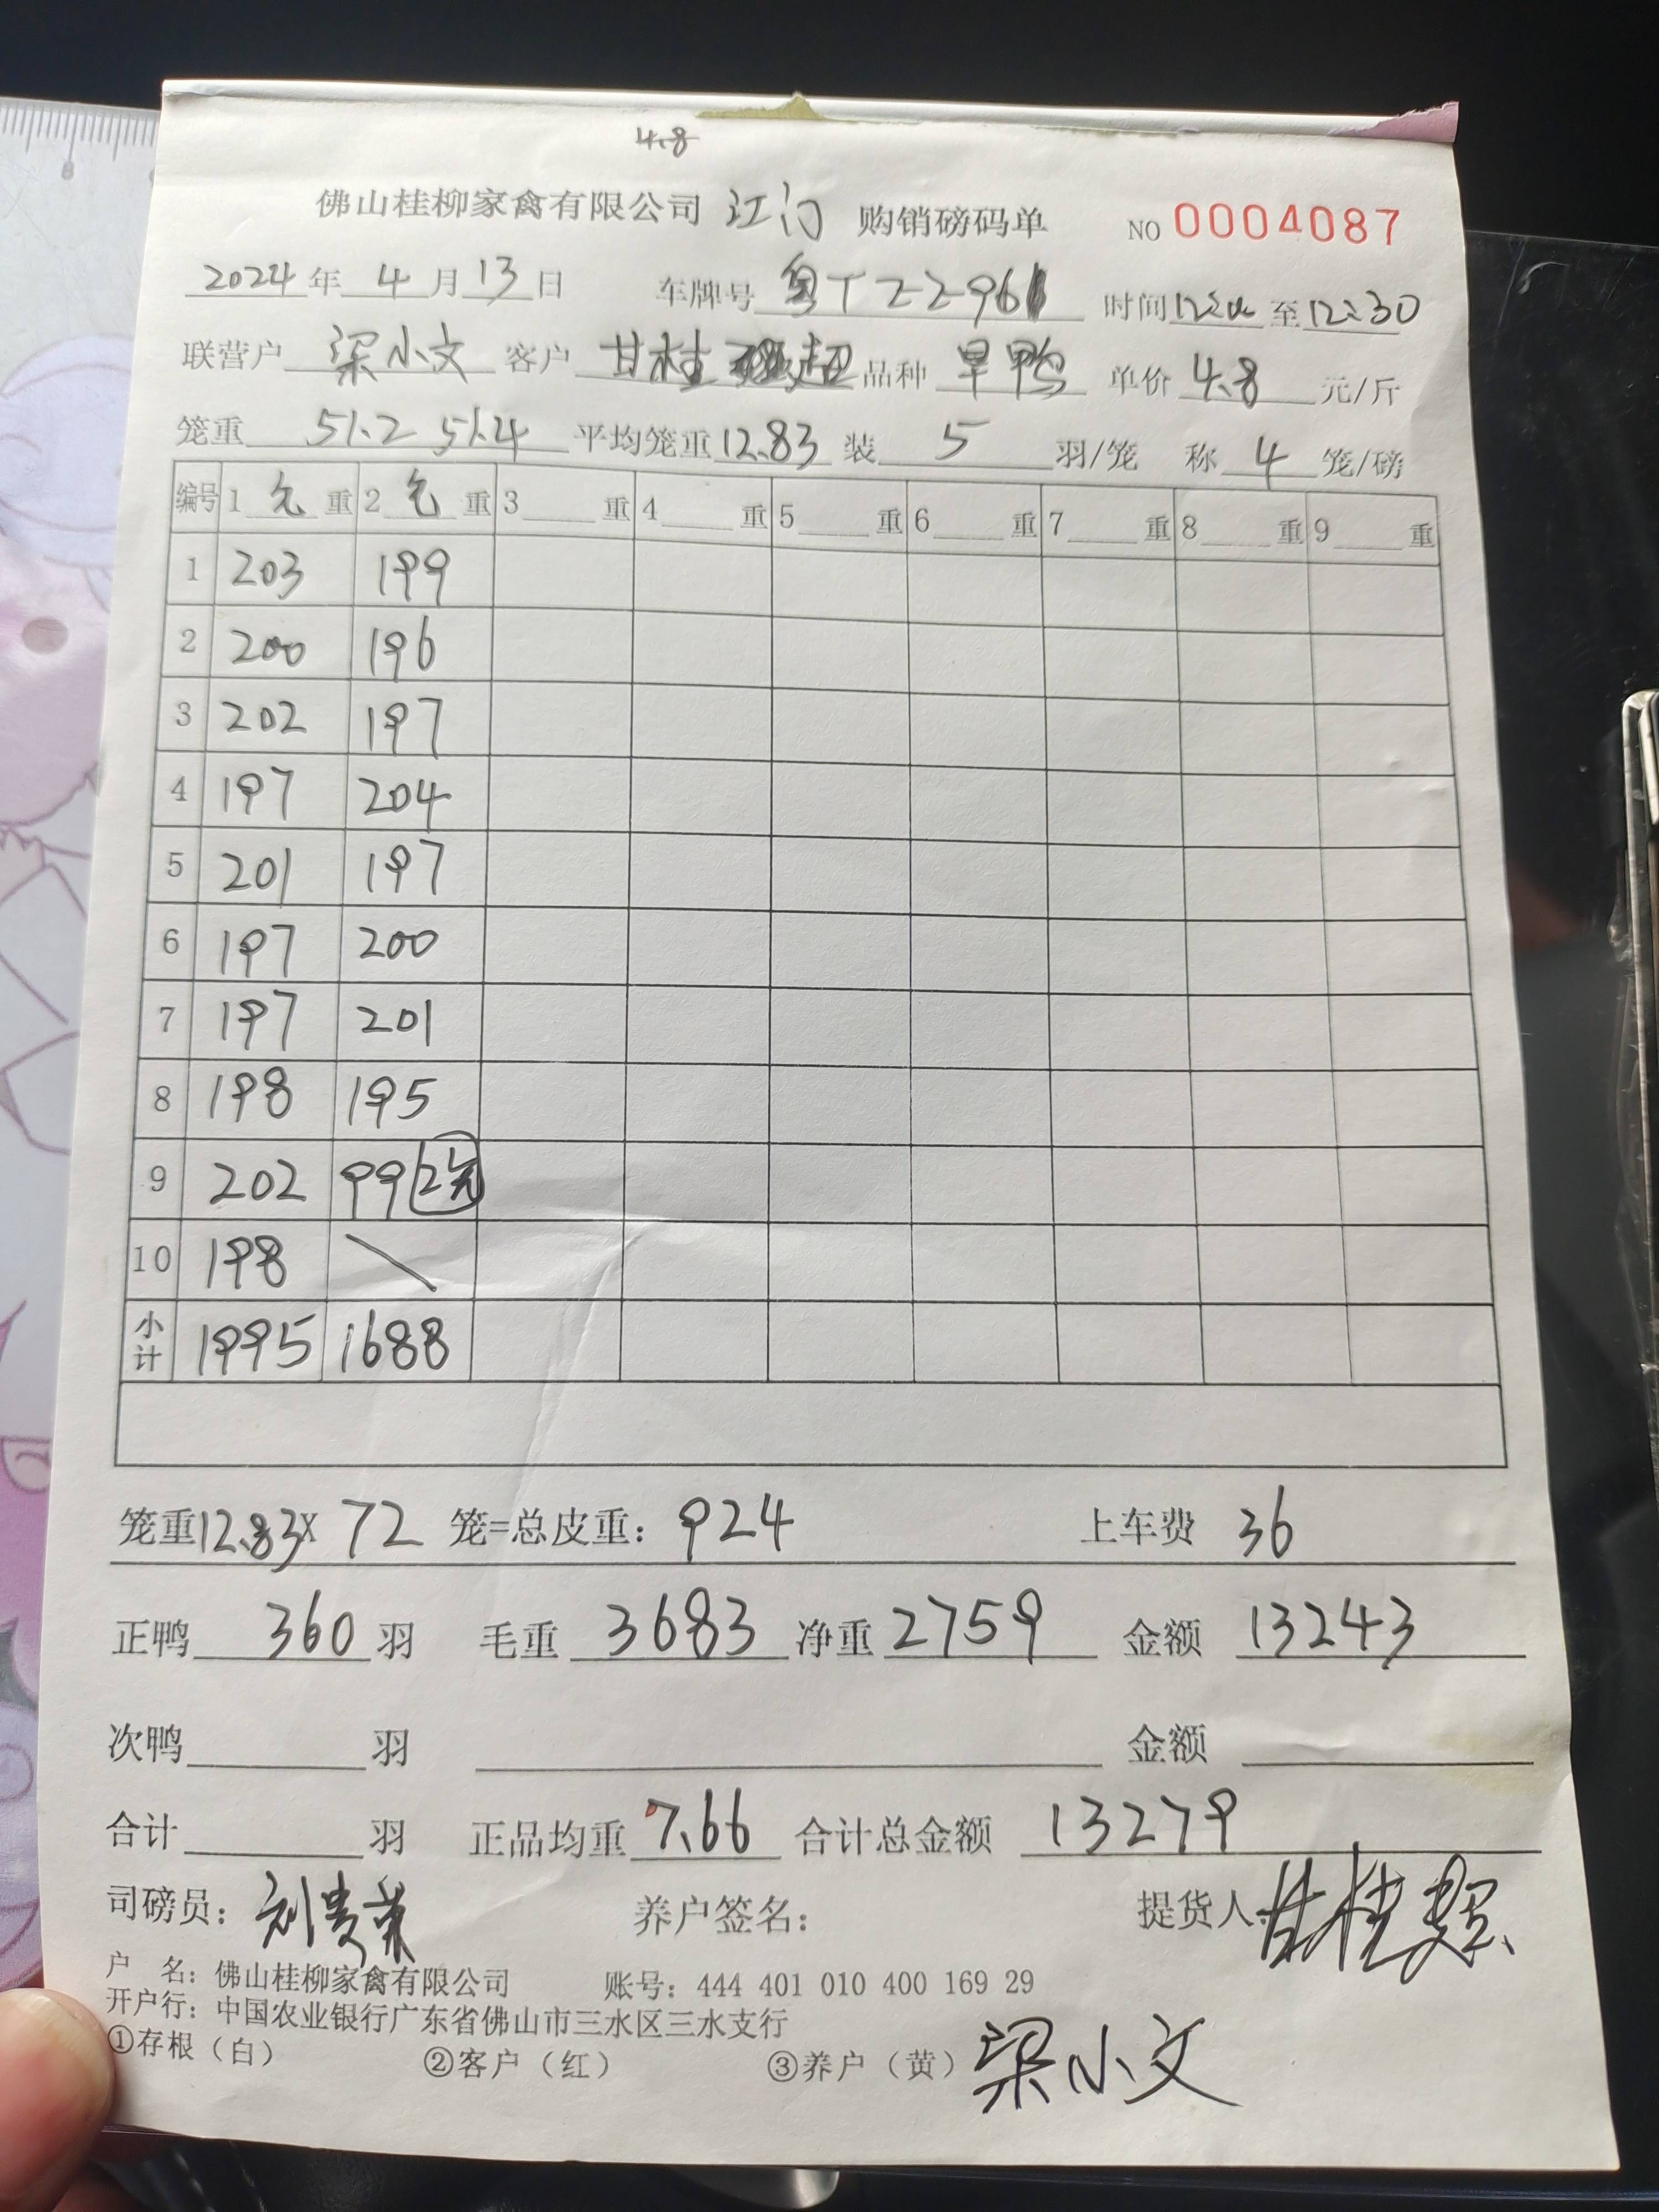 4.8
佛山桂柳家禽有限公司 江门 购销磅码单 NO 0004087
2024年 4 月 13 日 车牌号 粤TZ296 时间 至 12:30
联营户 梁小文 客户 甘桂 超 品种 旱鸭 单价 4.8 元/斤
笼重 51.2 51.4 平均笼重 12.83 装 5 羽/笼 称 4 笼/磅
编号 1 毛 重 2 毛 重 3 重 4 重 5 重 6 重 7 重 8 重 9 重
1 203 199
2 200 196
3 202 197
4 197 204
5 201 197
6 197 200
7 197 201
8 198 195
9 202 99 2笼
10 198 \
小计 1995 1688
笼重 12.83 X 72 笼=总皮重: 924 上车费 36
正鸭 360 羽 毛重 3683 净重 2759 金额 13243
次鸭 羽 金额
合计 羽 正品均重 7.66 合计总金额 13279
司磅员: 刘贵荣 养户签名: 提货人: 甘桂
户 名: 佛山桂柳家禽有限公司 账号: 444 401 010 400 169 29
开户行: 中国农业银行广东省佛山市三水区三水支行
①存根(白) ②客户(红) ③养户(黄) 梁小文